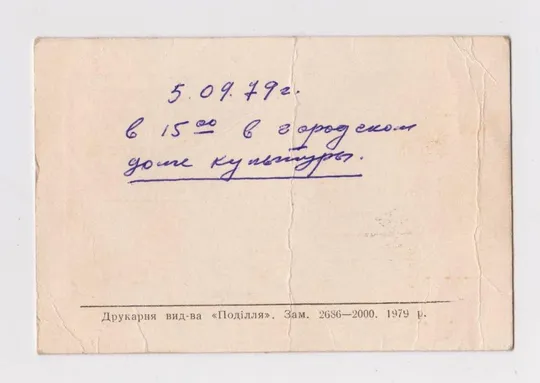 5.09.79г.
в 15 00 в городском
доме культуры.
Друкарня вид-ва «Поділля». Зам. 2686—2000. 1979 р.